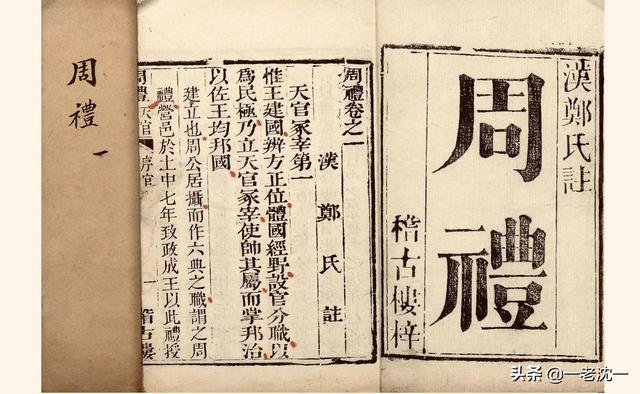 漢鄭氏註
周禮
稽古樓梓
周禮卷之一
漢鄭氏註
天官冢宰第一
惟王建國辨方正位體國經野設官分職以
為民極乃立天官冢宰使帥其屬而掌邦治
以佐王均邦國
建立也周公居攝而作六典之職謂之周
禮營邑於土中七年致政成王以此禮授
周禮 天官 序官 一 稽古樓
周禮 一
头条 @一老沈一